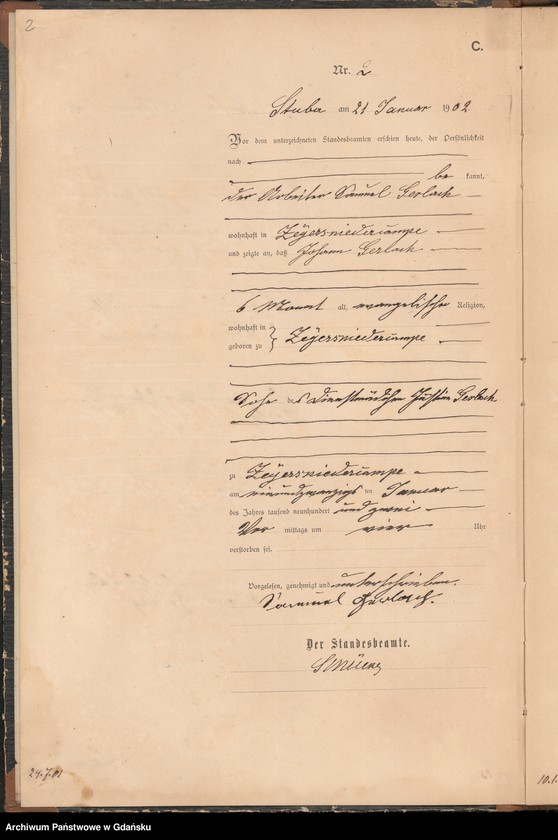 2
C.
Nr. 2
Stuba am 21 Januar 1902
Vor dem unterzeichneten Standesbeamten erschien heute, der Persönlichkeit
nach
be kannt,
der Arbeiter Samuel Gerlach
wohnhaft in Zeyersniedercampe
und zeigte an, daß Johann Gerlach
6 Monat alt, evangelischer Religion,
wohnhaft in
geboren zu } Zeyersniedercampe
Sohn des Dienstmädchen Gerlach
zu Zeyersniedercampe
am einundzwanzigs ten Januar
des Jahres tausend neunhundert und zwei
Vor mittags um vier Uhr
verstorben sei.
Vorgelesen, genehmigt und unterschrieben.
Samuel Gerlach.
Der Standesbeamte.
24.7.01
10.1.
Archiwum Państwowe w Gdańsku